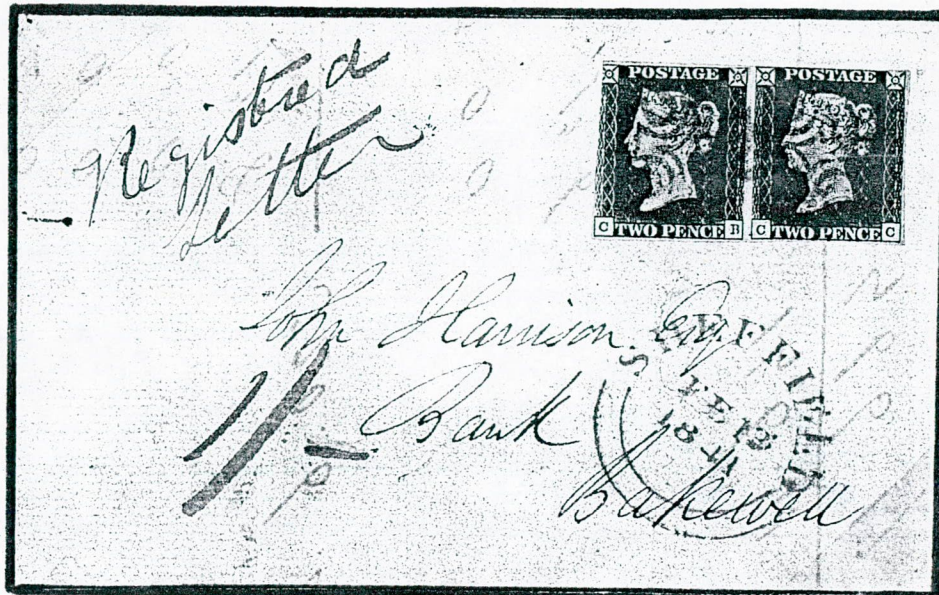 Registered
Letter
POSTAGE POSTAGE
C TWO PENCE B C TWO PENCE C
John Harrison Esq.
Bank
Bakewell
SHEFFIELD
FE 12
1841
1/-